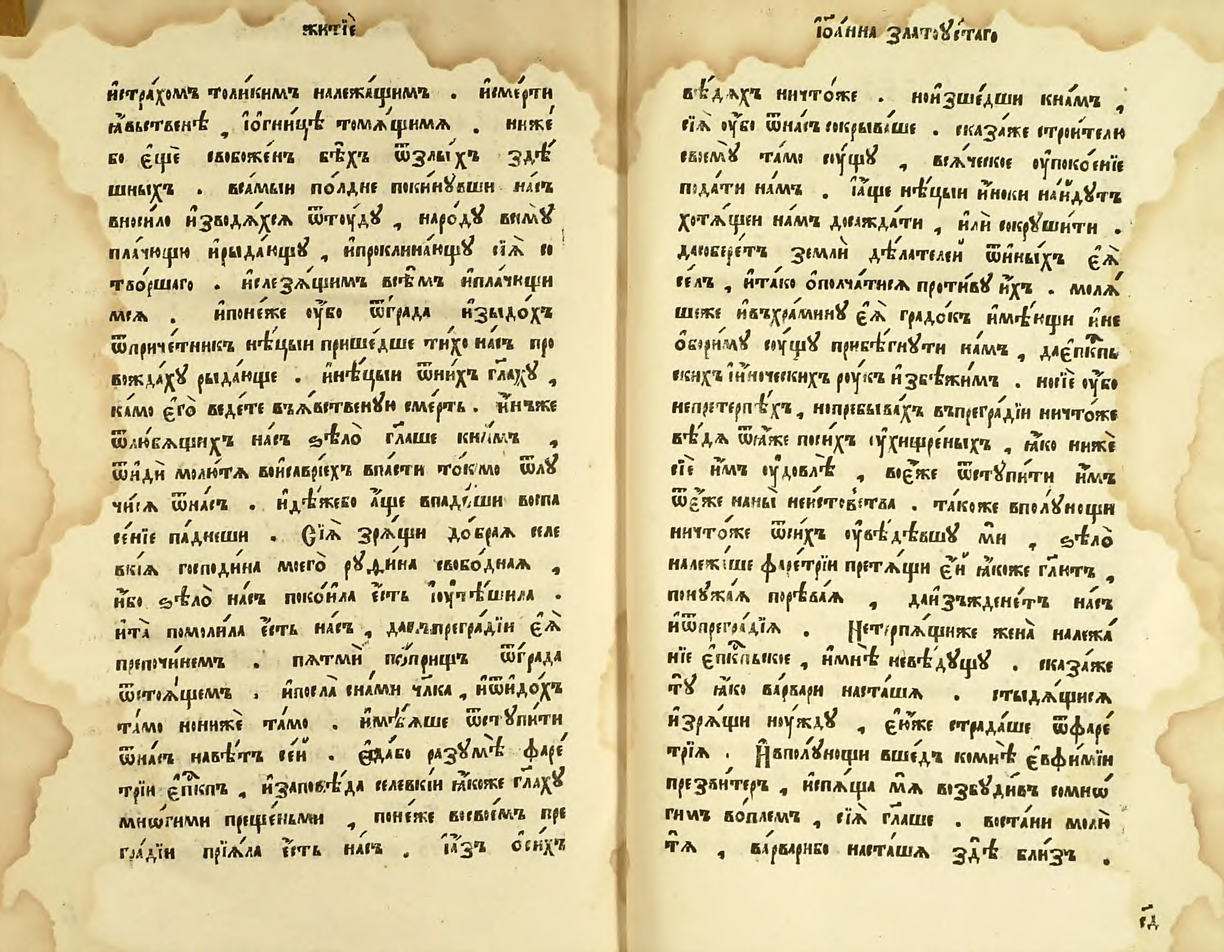 житїѐ
и҆стра́хомъ толи́кимъ належа́щимъ . и҆сме́рти
ꙗ҆́вьственѣ , і҆ѻ҆гни́цѣ томѧ́щимѧ . ниже́
бо є҆щѐ свобоже́нъ бѣ́хъ ѿзлы́хъ здѣ́
шныхъ . всѧ́мыи по́лдне поки́нꙋвши на́съ
вноси́ло и҆зводѧ́хсѧ ѿтоу́дꙋ , наро́дꙋ всемꙋ̀
пла́чющю и҆рыда́ющꙋ , и҆проклина́ющꙋ сїѧ̀ со
тво́ршаго . и҆слезѧ́щимъ всѣ́мъ и҆пла́чищи
мсѧ . и҆поне́же оу҆́бо ѿгра́да и҆зыдо́хъ
ѿприче́тникъ нѣ́цыи прише́дше ти́хо на́съ про
вожда́хꙋ рыда́юще . и҆нѣ́цыи ѿни́хъ гл҃а́хꙋ ,
ка́мо є҆го̀ веде́те въꙗ҆́вственꙋю сме́рть . и҆́нъже
ѿлю́бѧщихъ на́съ ѕѣлѡ̀ гл҃аше кни́мъ ,
ѿи҆дѝ молю́тѧ во́исаврїехъ впа́сти то́кмо ѿлꙋ
чи́сѧ ѿна́съ . и҆дѣ́жебо а҆́ще впаде́ши воспа
се́нїе паде́ши . Сїѧ̀ зрѧ́щи до́браѧ селе
вкі́ѧ господи́на моего̀ рꙋди́на свобо́днаѧ ,
и҆́бо ѕѣлѡ̀ на́съ поко́ила є҆́сть і҆оутѣ́шила .
и҆та̀ помоли́ла є҆́сть на́съ , давъпрегра́дїи є҆ѧ̀
препочи́немъ . пѧтмѝ по́прищъ ѿгра́да
ѿстоѧ́щемъ . и҆посла̀ сна́ми чл҃ка , и҆ѿидо́хъ
та́мо нонижѐ та́мо . и҆мѣ́ѧше ѿстꙋпи́ти
ѿна́съ навѣ́тъ се́й . є҆два́бо разꙋмѣ̀ фаре́
трїи є҆пⷭ҇кпъ , и҆заповѣ́да селевкі́и ꙗ҆́коже гл҃а́хꙋ
мнѡ́гими преще́ньми , поне́же восвое́мъ пре
гра́дїи прїѧ́ла є҆́сть на́съ . і҆а҆́зъ ѻ҆си́хъ
і҆ѡа́нна златоꙋ́стаго
вѣ́дѧхъ ничто́же . нои҆зше́дши кна́мъ ,
сїѧ̀ оу҆́бо ѿна́съ сокрыва́ше . сказа́же строи́телю
своемꙋ̀ та́мо сꙋ́щꙋ , всѧ́ческое оу҆покое́нїе
пода́ти на́мъ . і҆а҆́ще нѣ́цыи и҆́ноки наи́дꙋтъ
хотѧ́щеи на́мъ досажда́ти , и҆лѝ сокрꙋши́ти .
дасобере́тъ землѝ дѣ́лателей ѿи҆ны́хъ є҆ѧ̀
се́лъ , и҆та́ко ѻ҆полча́тисѧ проти́вꙋ и҆́хъ . молѧ́
шеже и҆въхра́минꙋ є҆ѧ̀ градо́къ и҆мѣ́ющи и҆не
ѻ҆бори́мꙋ сꙋ́щꙋ прибѣ́гнꙋти на́мъ , дає҆пⷭ҇кпь
скихъ і҆и҆́ноческихъ роу́къ и҆збѣжи́мъ . носїѐ оу҆́бо
непретерпѣ́хъ , нопребыва́хъ въпрегра́дїи ничто́же
вѣ́дѧ ѿꙗ҆́же поси́хъ оу҆хищре́ныхъ , ꙗ҆́ко нижѐ
сїѐ и҆́мъ оу҆довлѣ̀ , воє҆́же ѿстꙋпи́ти и҆́мъ
ѿє҆́же наны̀ неи́стовства . та́коже вполꙋ́нощи
ничто́же ѿси́хъ оу҆вѣ́дѣвшꙋ мѝ , ѕѣлѡ̀
належа́ше фаре́трїи претѧ́щи є҆́й ꙗ҆́коже гл҃и́тъ ,
понꙋжа́ѧ порѣва́ѧ , даи҆зъждене́тъ на́съ
и҆ѿпрегра́дїѧ . Нетерпѧ́щиже жена̀ належа́
нїе є҆пⷭ҇кпьское , и҆мнѣ̀ невѣ́дꙋщꙋ . сказа́же
тꙋ̀ ꙗ҆́ко ва́рвари наста́шѧ . стыдѧ́щисѧ
и҆зрѧ́щи ноу́ждꙋ , є҆ю́же страда́ше ѿфаре́
трїѧ . И҆вполꙋ́нощи вше́дъ комнѣ̀ є҆vфи́мїи
презви́теръ , и҆спѧ́ща мѧ̀ возбꙋди́въ сомнѡ́
гимъ во́племъ , сїѧ̀ гл҃аше . воста́ни молю́
тѧ , ва́рварибо наста́шѧ здѣ̀ бли́зъ .
є҃д